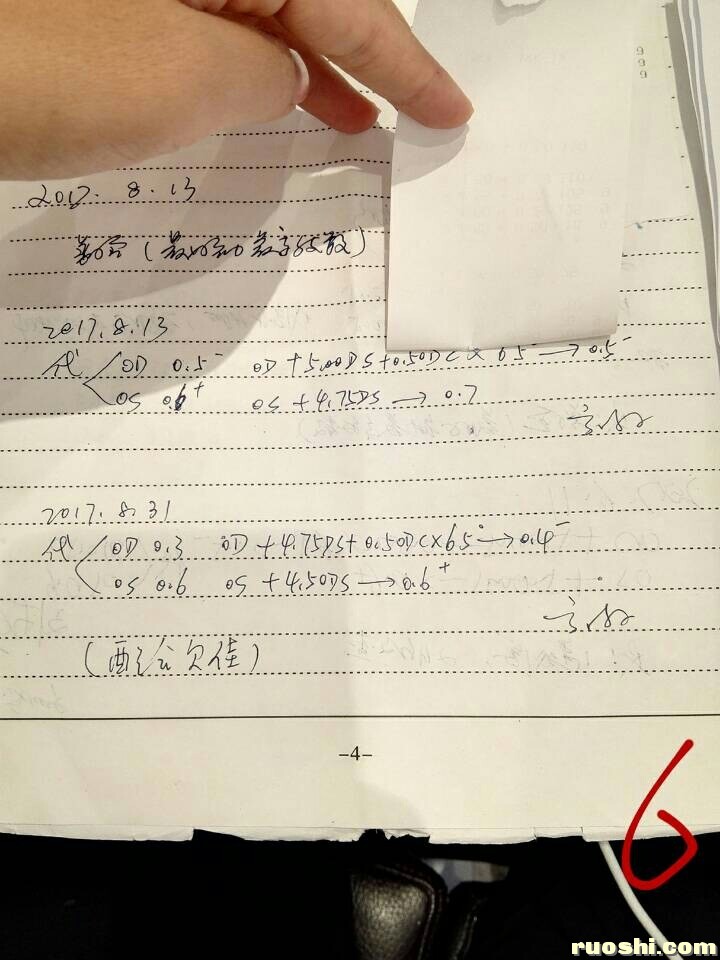 2017. 8. 13
2017. 8. 13
代 OD 0.5⁻ OD +5.00DS+0.50DC×65° → 0.5⁻
OS 0.6⁺ OS +4.75DS → 0.7
2017. 8. 31
代 OD 0.3 OD +4.75DS+0.50DC×65° → 0.4⁻
OS 0.6 OS +4.50DS → 0.6⁺
(配合欠佳)
-4-
6
ruoshi.com